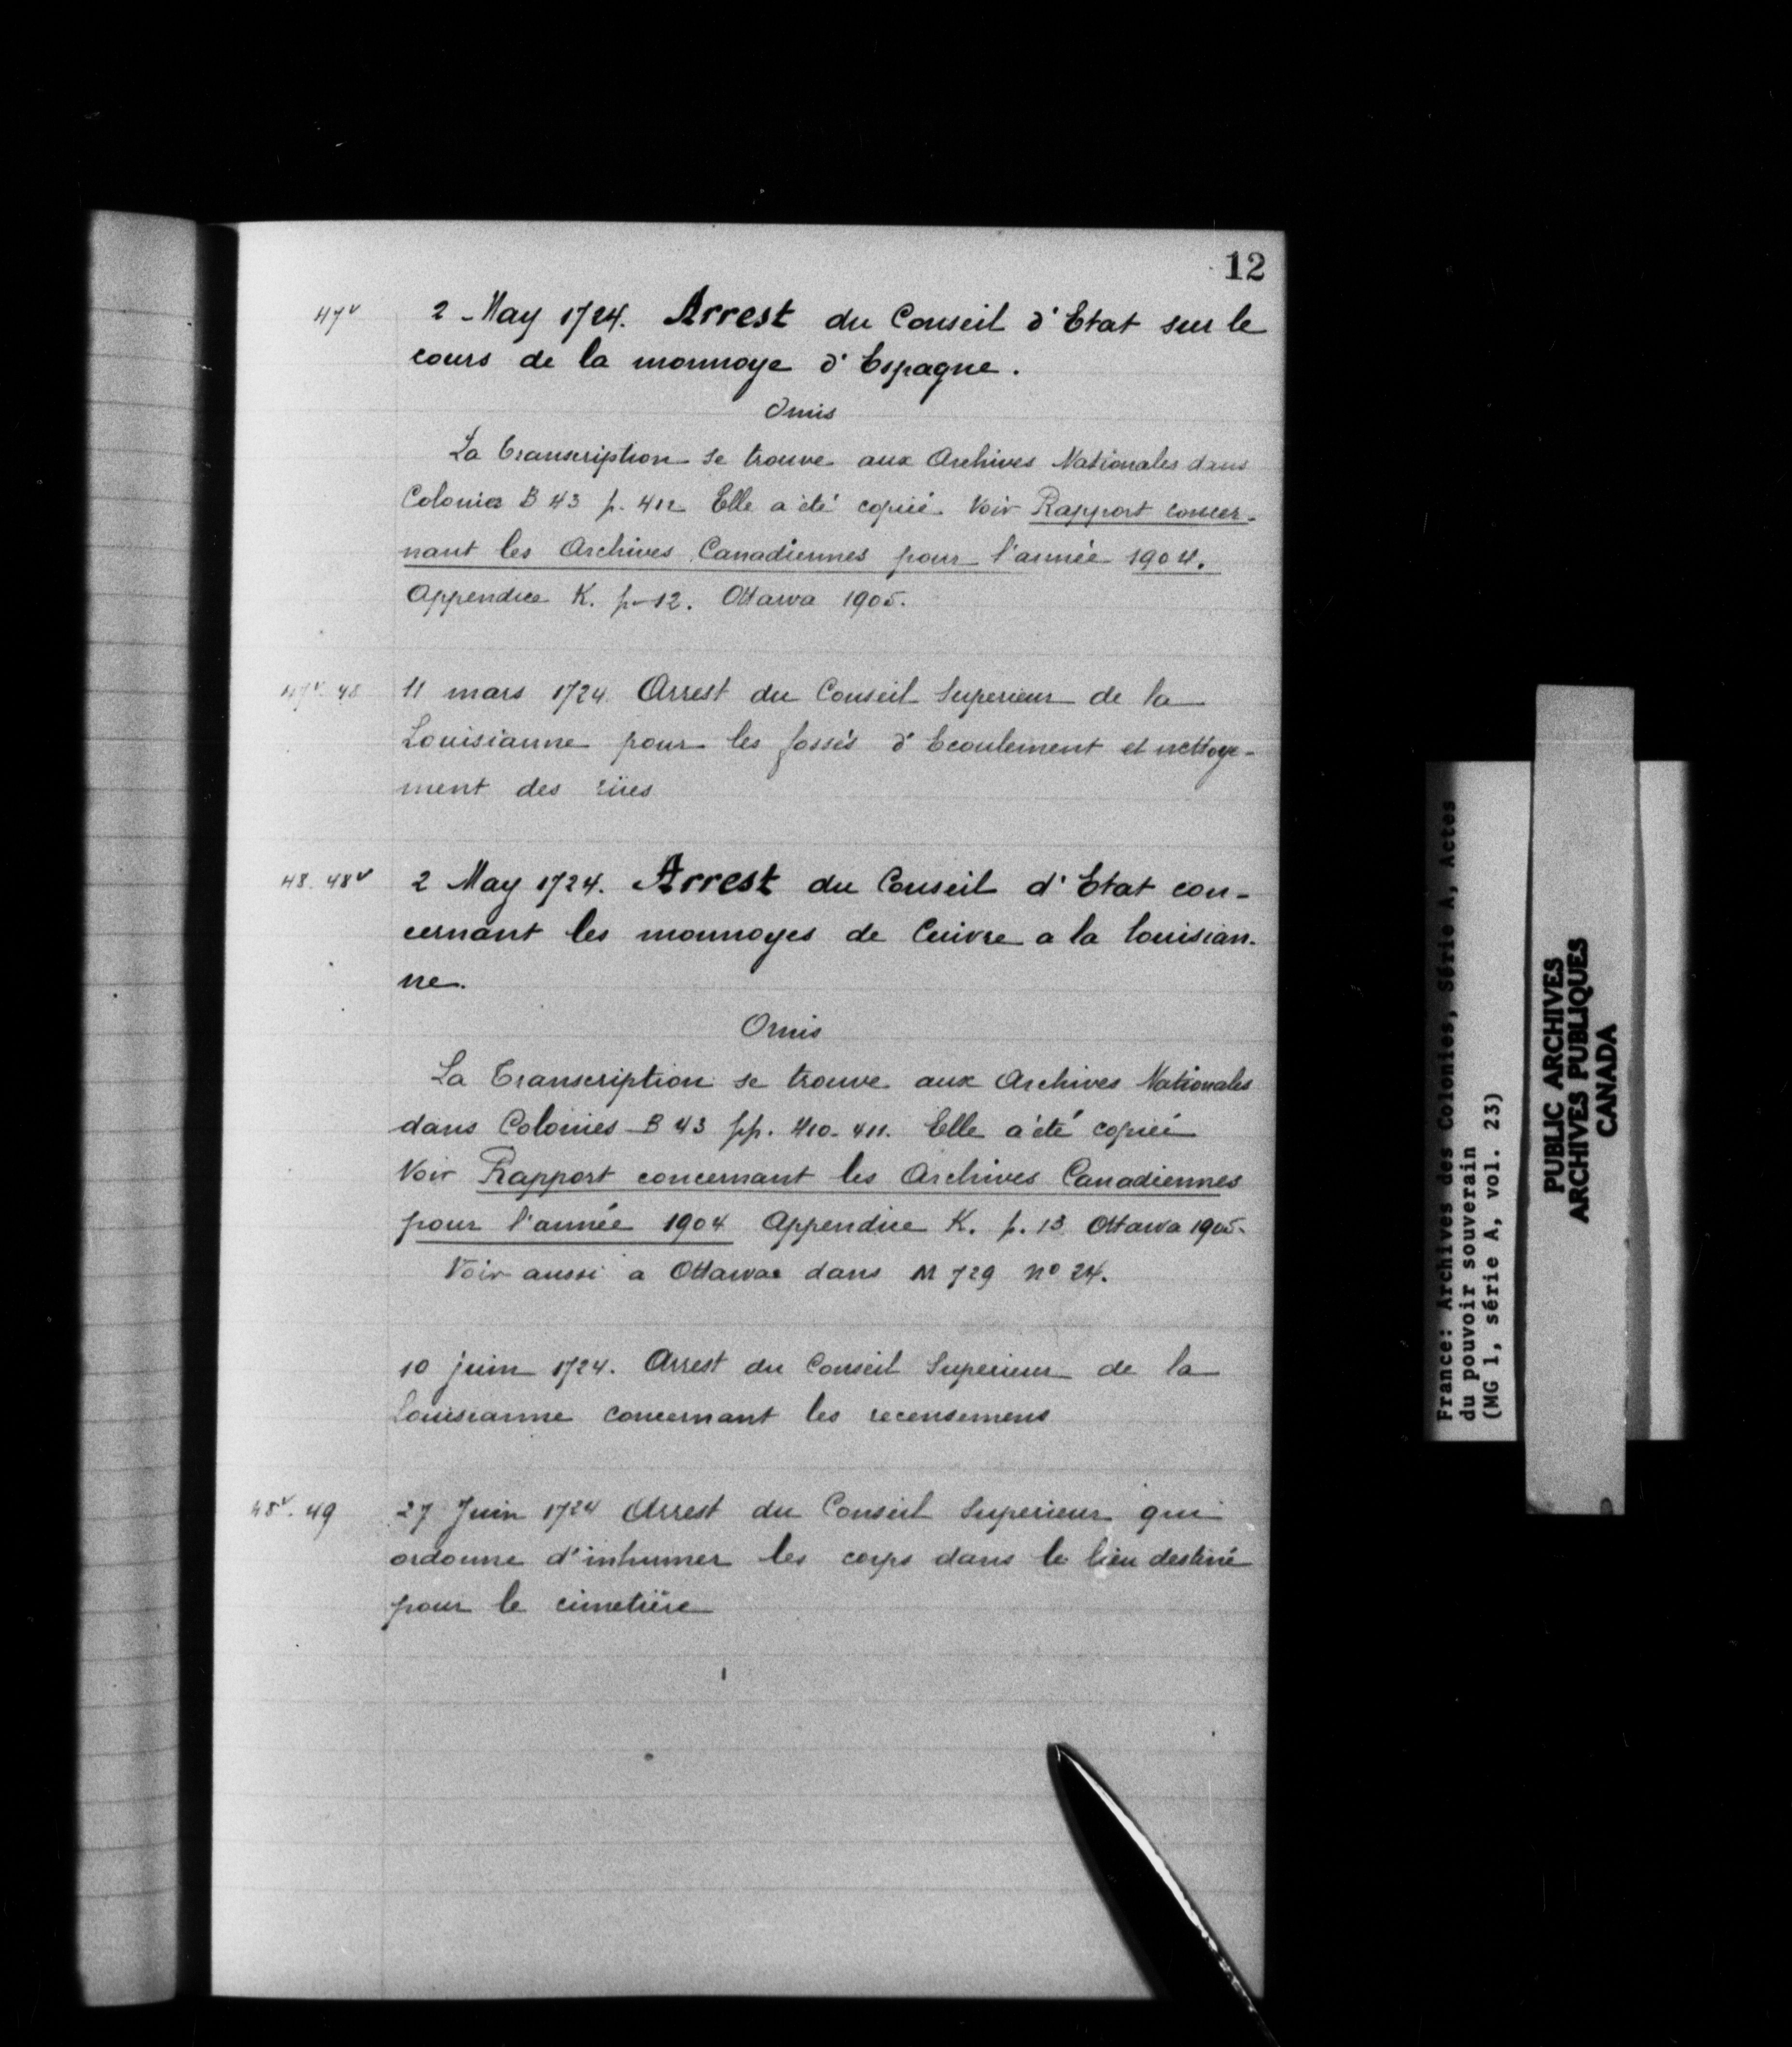 12
47v 2 May 1724. Arrest du Conseil d'Etat sur le
cours de la monnoye d'Espagne.
Omis
La transcription se trouve aux Archives Nationales dans
Colonies B 43 p. 412 Elle a été copiée. Voir Rapport concer-
nant les Archives Canadiennes pour l'année 1904.
Appendice K. p. 12. Ottawa 1905.
47v. 48 11 mars 1724 Arrest du Conseil Superieur de la
Louisianne pour les fossés d'Ecoulement et nettoye-
ment des rües
48. 48v 2 May 1724. Arrest du Conseil d'Etat con-
cernant les monnoyes de Cuivre a la louisian-
ne.
Omis
La Transcription se trouve aux Archives Nationales
dans Colonies B 43 pp. 410-411. Elle a été copiée
Voir Rapport concernant les Archives Canadiennes
pour l'année 1904 Appendice K. p. 13 Ottawa 1905.
Voir aussi a Ottawa dans M 729 no 24.
10 juin 1724. Arrest du Conseil Superieur de la
Louisianne concernant les recensemens
48v. 49 27 Juin 1724 Arrest du Conseil Superieur qui
ordonne d'inhumer les corps dans le lieu destiné
pour le cimetière
France: Archives des Colonies, Série A, Actes
du pouvoir souverain
(MG 1, série A, vol. 23)
PUBLIC ARCHIVES
ARCHIVES PUBLIQUES
CANADA